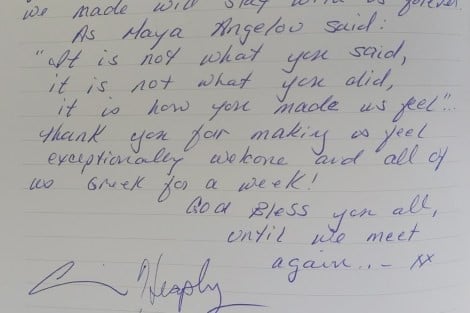 we made will stay with us forever.
As Maya Angelou said:
"It is not what you said,
it is not what you did,
it is how you made us feel"...
thank you for making us feel
exceptionally welcome and all of
us Greek for a week!
God Bless you all,
until we meet
again... - xx
Heaphy